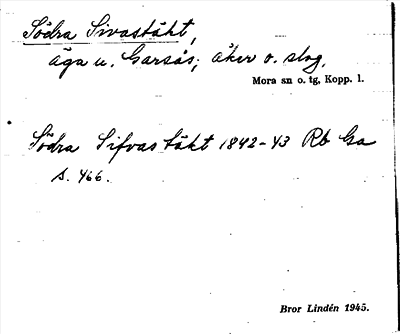 Södra Sivastäkt,
äga u. Garsås; åker o. slog.
Mora sn o. tg, Kopp. l.
Södra Sifvas täkt 1842-43 Rb Ga
s. 466.
Bror Lindén 1945.